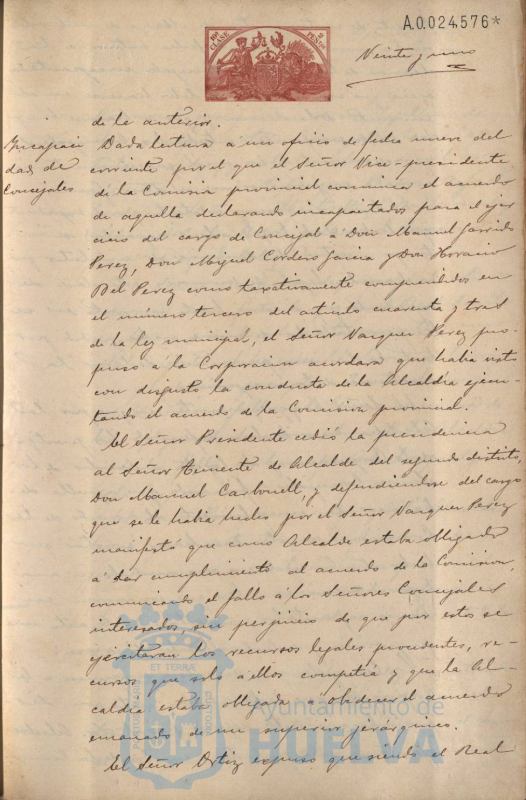 A.0.024,576*
10ª CLASE
PESETAS
Veinte y uno
de la anterior.
Incapaci
dad de
Concejales
Dada lectura á un oficio de fecha nueve del
corriente por el que el Señor Vice-presidente
de la Comision provincial comunica el acuerdo
de aquella declarando incapacitados para el ejer
cicio del cargo de Concejal a Don Manuel Garrido
Perez, Don Miguel Cordero Garcia y Don Horacio
Bel Perez como taxativamente comprendidos en
el número tercero del artículo cuarenta y tres
de la ley municipal, el Señor Vazquez Perez pro-
puso á la Corporacion acordara que habia visto
con disgusto la conducta de la Alcaldía ejecu-
tando el acuerdo de la Comision provincial.
El Señor Presidente cedió la presidencia
al Señor Teniente de Alcalde del segundo distrito,
Don Manuel Carbonell, y defendiendose del cargo
que se le habia hecho por el Señor Vazquez Perez
manifestó que como Alcalde estaba obligado
á dar cumplimiento al acuerdo de la Comision,
comunicando el fallo á los Señores Concejales
interesados, sin perjuicio de que por estos se
ejercitaran los recursos legales procedentes, re-
cursos que solo a ellos competia y que la Al-
caldía estaba obligada a obedecer el acuerdo
emanado de un superior jerárquico.
El Señor Ortiz expuso que siendo el Real
ET TERRÆ
PORTUS MARIS
CUSTODIA
Ayuntamiento de
HUELVA